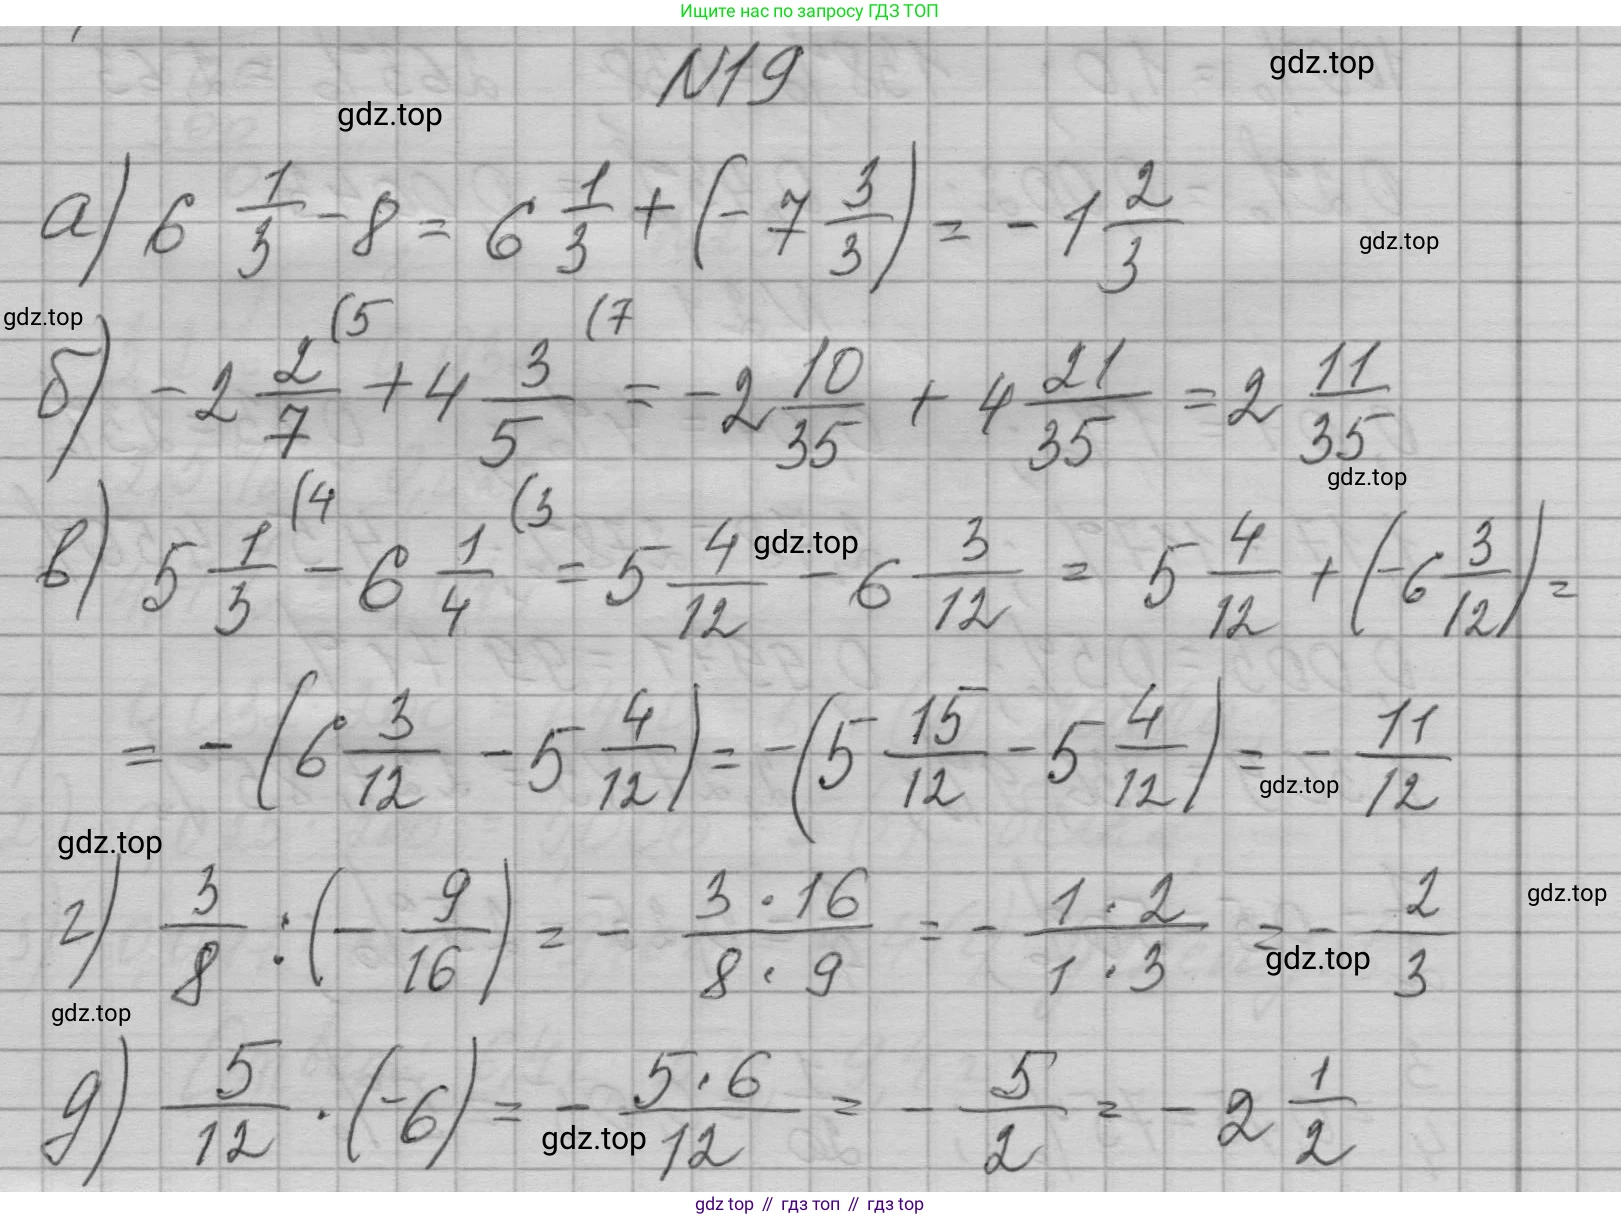 Ищите нас по запросу ГДЗ ТОП
N19
gdz.top
gdz.top
а) 6 1/3 - 8 = 6 1/3 + (- 7 3/3) = - 1 2/3
gdz.top
gdz.top
(5 (7
б) - 2 2/7 + 4 3/5 = - 2 10/35 + 4 21/35 = 2 11/35
gdz.top
(4 (3
в) 5 1/3 - 6 1/4 = 5 4/12 - 6 3/12 = 5 4/12 + (- 6 3/12) =
gdz.top
= - (6 3/12 - 5 4/12) = - (5 15/12 - 5 4/12) = - 11/12
gdz.top
gdz.top
г) 3/8 : (- 9/16) = - 3 · 16/8 · 9 = - 1 · 2/1 · 3 = - 2/3
gdz.top
gdz.top
gdz.top
д) 5/12 · (- 6) = - 5 · 6/12 = - 5/2 = - 2 1/2
gdz.top
gdz top // гдз топ // гдз top